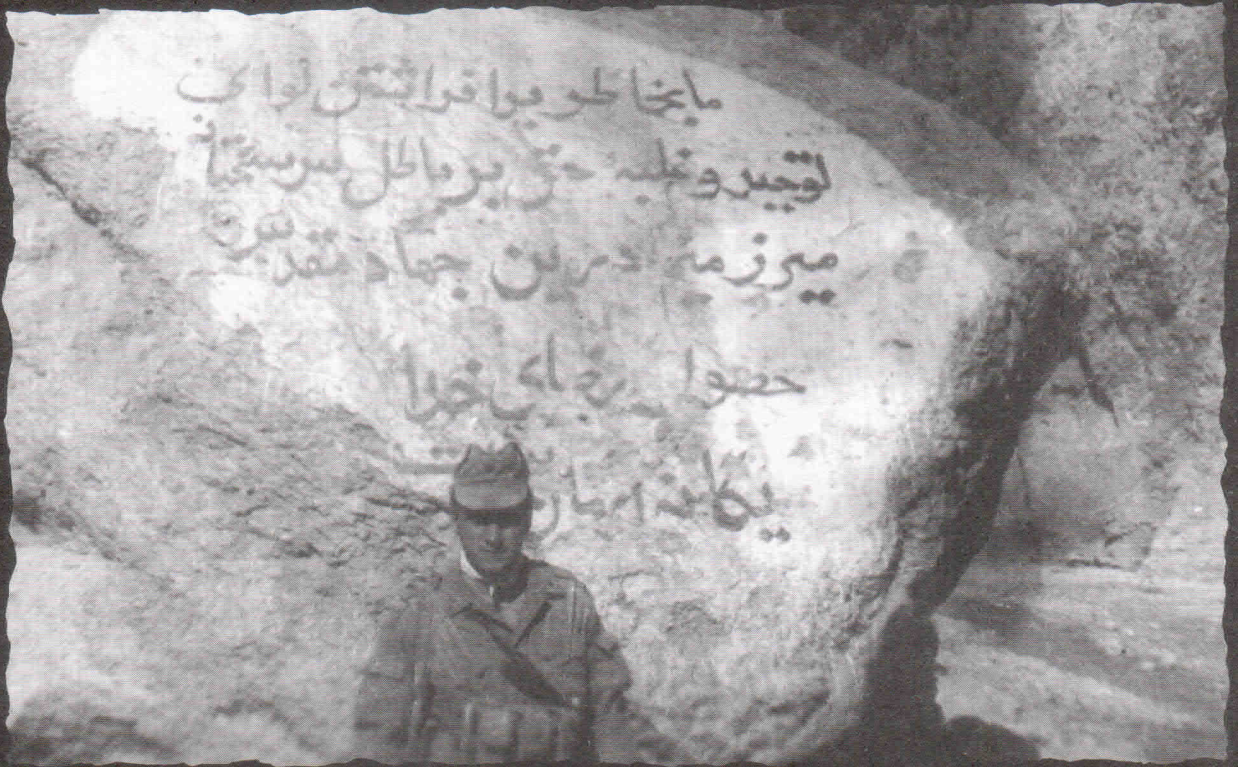 ما بخاطر برافراشتن لوای
توحید و غلبه حق بر باطل سرسختانه
میرزمیم درین جهاد مقدس
حصول رضای خدا
یگانه